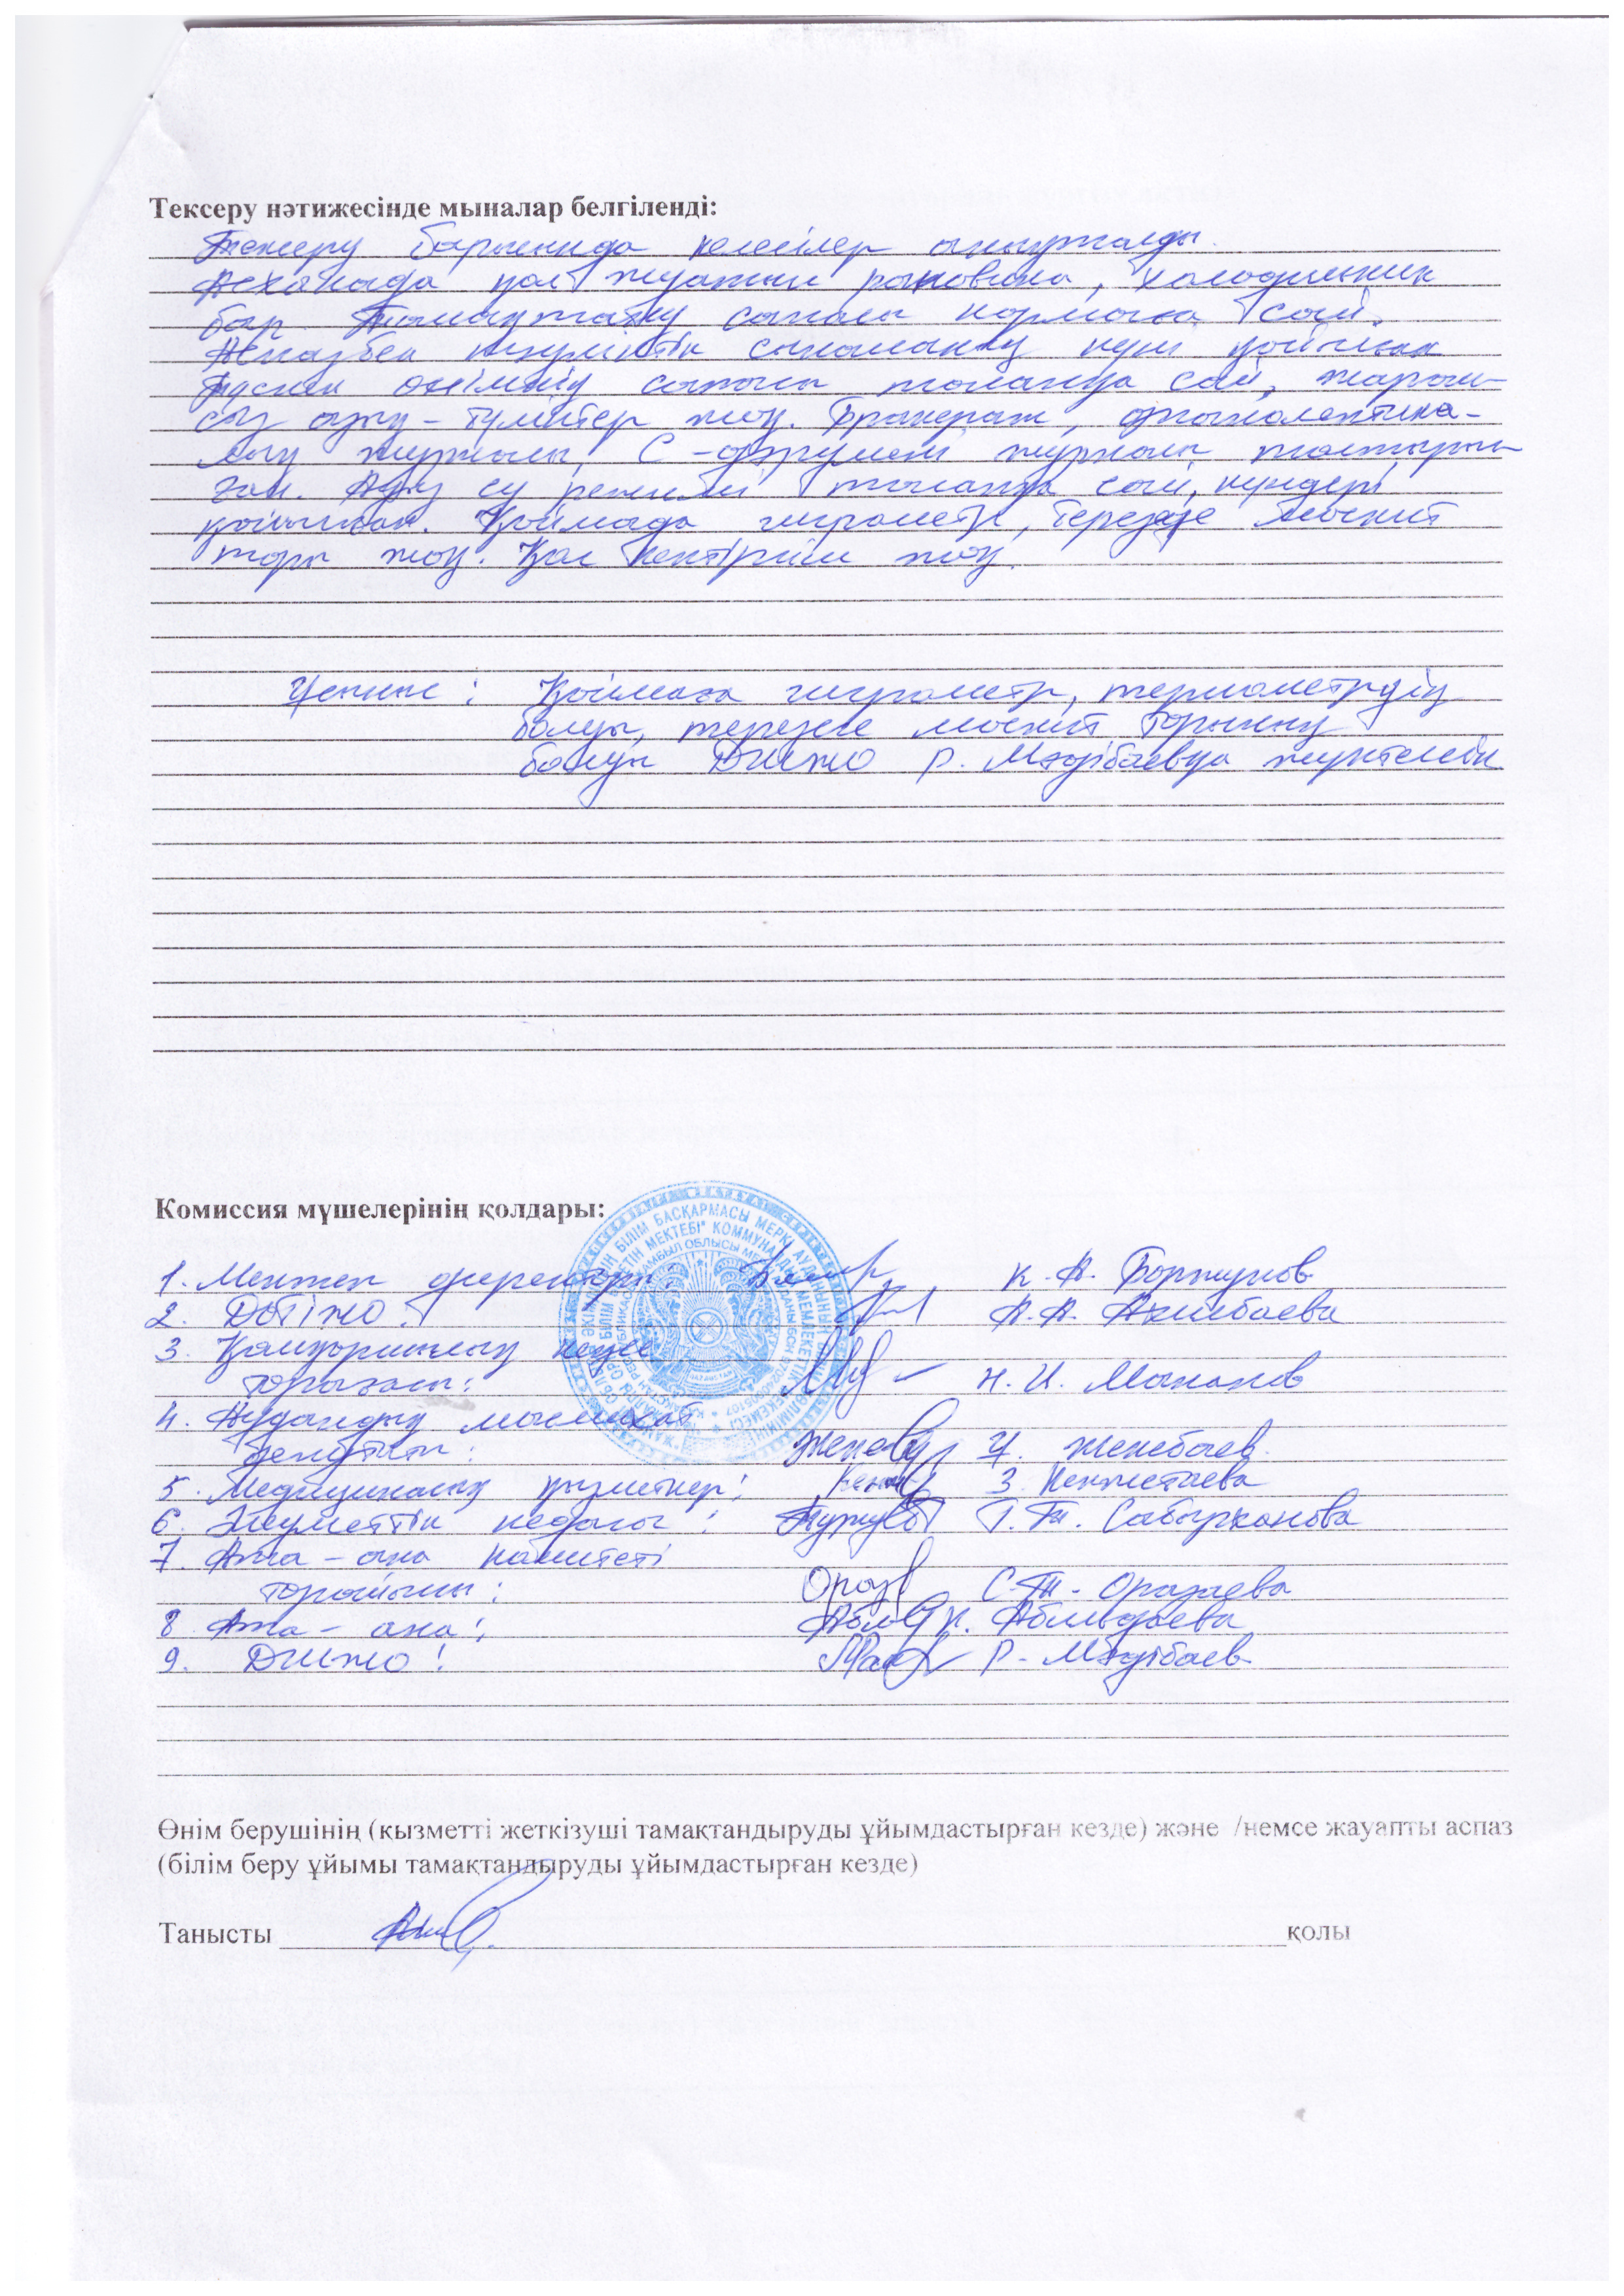 Тексеру нәтижесінде мыналар белгіленді:
Тексеру барысында келесілер анықталды.
Асханада қол жуатын раковина, холодильник
бар. Тамақтану сапасы нормаға сай.
Аспазбен тәуліктік сынаманың күні қойылған
Түскен өнімнің сапасы талапқа сай, жарам-
сыз азық-түліктер жоқ. Бракераж, органолептика-
лық журналы, С-дәрумені журналы толтырыл-
ған. Ауыз су режимі талапқа сай, күндері
қойылған. Қоймада гигрометр, терезеде москит
торы жоқ. Қол кептіргіш жоқ.
Ұсыныс: Қоймаға гигрометр, термометрдің
болуы, терезеге москит торының
болуы ДШІЖО Р. Мәдібаевқа жүктелсін
Комиссия мүшелерінің қолдары:
1. Мектеп директоры: К.А. Боржунов
2. ДОІЖО: А.А. Акимбаева
3. Қамқоршылық кеңес
төрағасы: Н.И. Маканов
4. Аудандық маслихат
депутаты: Ч. Женебаев.
5. Медициналық қызметкер: З. Кенжетаева
6. Әлеуметтік педагог: Г.Т. Сабырханова
7. Ата-ана комитеті
төрайымы: С.Т. Оразаева
8 Ата-ана: К. Абливдаева
9. ДШІЖО: Р. Мәдібаев
Өнім берушінің (қызметті жеткізуші тамақтандыруды ұйымдастырған кезде) және /немсе жауапты аспаз
(білім беру ұйымы тамақтандыруды ұйымдастырған кезде)
Танысты қолы